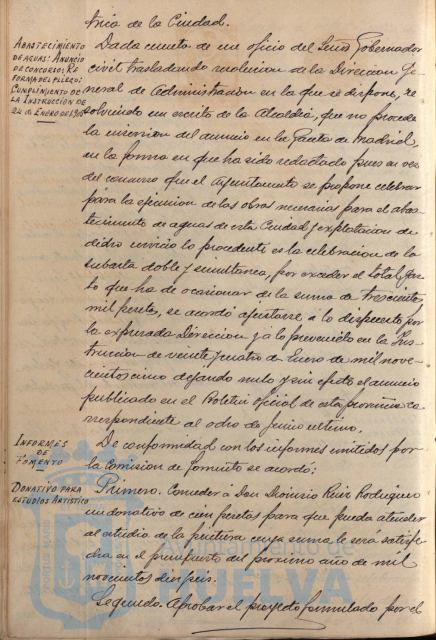 tricio de la Ciudad.
ABASTECIMIENTO
DE AGUAS: ANUNCIO
DE CONCURSO; RE-
FORMA DEL PLIEGO;
CUMPLIMIENTO DE
LA INSTRUCCIÓN DE
24 de ENERO DE 1905
Dada cuenta de un oficio del Señor Gobernador
civil trasladando resolucion de la Direccion Ge-
neral de Administracion en la que se dispone, re-
solviendo un escrito de la Alcaldia, que no procede
la insercion del anuncio en la Gaceta de Madrid
en la forma en que ha sido redactado pues en vez
del concurso que el Ayuntamiento se propone celebrar
para la ejecucion de las obras necesarias para el abas-
tecimiento de aguas de esta Ciudad y explotacion de
dicho servicio lo procedente es la celebracion de la
subasta doble y simultanea, por exceder el total gas-
to que ha de ocasionar de la suma de trescientas
mil pesetas, se acordó ajustarse á lo dispuesto por
la expresada Direccion y á lo prevenido en la Ins-
truccion de veinte y cuatro de Enero de mil nove-
cientos cinco dejando nulo y sin efecto el anuncio
publicado en el Boletin oficial de esta provincia co-
rrespondiente al ocho de Junio ultimo.
INFORMES
DE
FOMENTO
De conformidad con los informes emitidos por
la Comision de Fomento se acordó:
DONATIVO PARA
ESTUDIOS ARTISTICO
Primero. Conceder á Don Dionisio Ruiz Rodriguez
un donativo de cien pesetas para que pueda atender
al estudio de la pintura cuya suma le será satisfe-
cha en el presupuesto del proximo año de mil
novecientos diez y seis.
Segundo. Aprobar el proyecto formulado por el
de
HUELVA